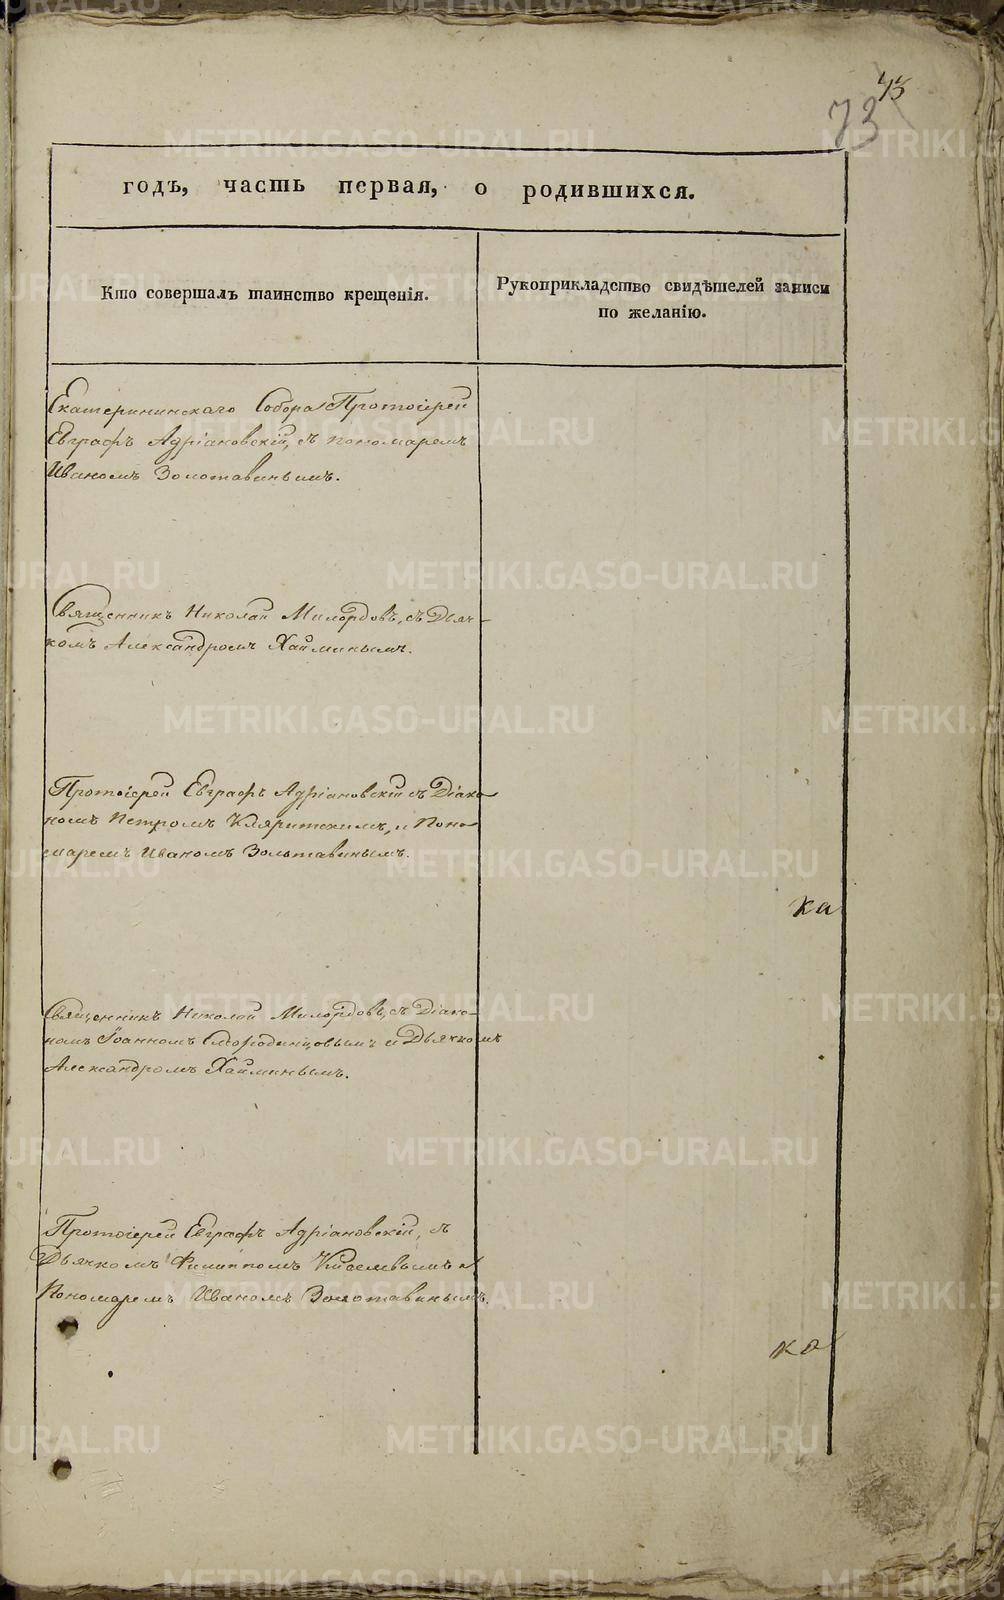 73
73
годъ, часть первая, о родившихся.
Кто совершалъ таинство крещенія.
Рукоприкладство свидѣтелей записи
по желанію.
Екатерининскаго Собора Протоіерей
Евграфъ Адріановскій, съ пономаремъ
Иваномъ Золотавинымъ.
Священникъ Николай Милордовъ, съ Дьяч-
комъ Александромъ Хайминымъ.
Протоіерей Евграфъ Адріановскій съ Діако-
номъ Петромъ и Поно-
маремъ Иваномъ Золотавинымъ.
ка
Священникъ Николай Милордовъ, съ Діако-
номъ Іоанномъ Смородинцовымъ и Дьячкомъ
Александромъ Хайминымъ.
Протоіерей Евграфъ Адріановскій, съ
Дьячкомъ Филиппомъ и
Пономаремъ Иваномъ Золотавинымъ.
ка
METRIKI.GASO-URAL.RU